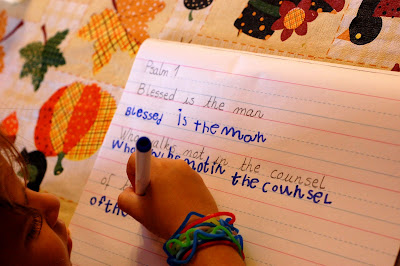 Psalm 1
Blessed is the man
Blessed is the man
Who walks not in the counsel
Who not in the counsel
of
of the